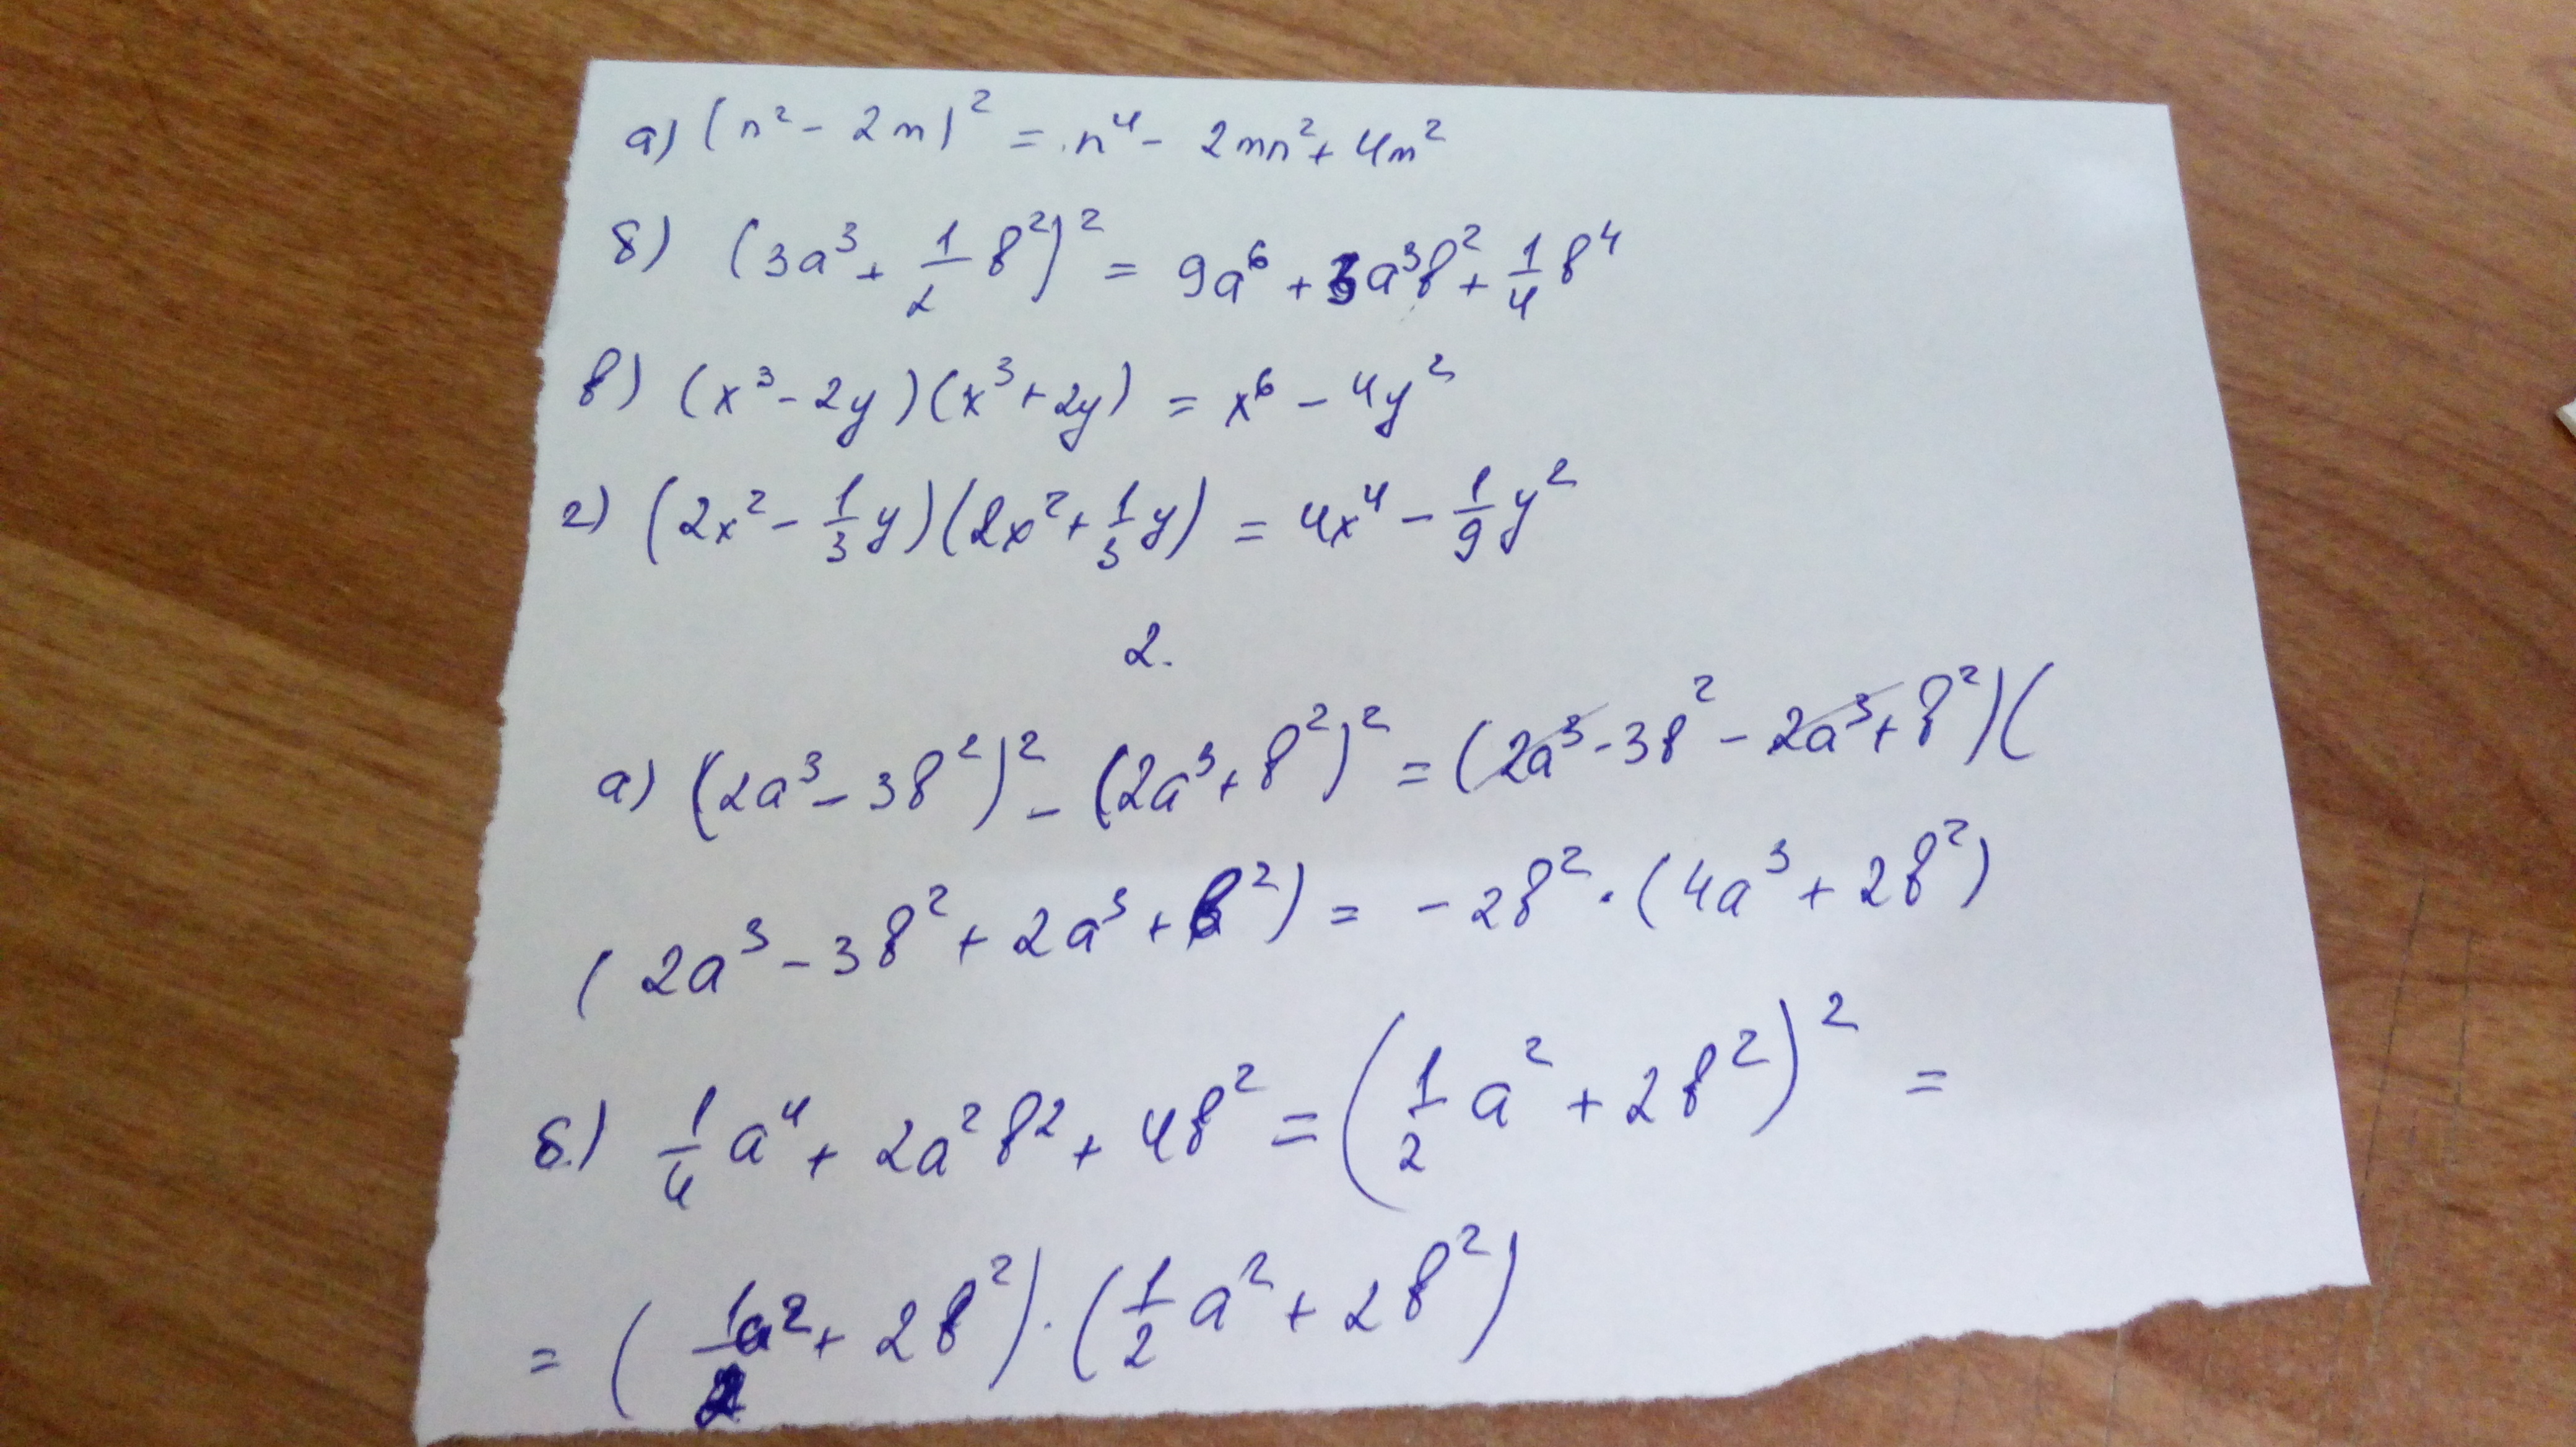 а) (n² - 2m)² = n⁴ - 2mn² + 4m²
б) (3a³ + 1/2 b²)² = 9a⁶ + 3a³b² + 1/4 b⁴
в) (x³ - 2y)(x³ + 2y) = x⁶ - 4y²
г) (2x² - 1/3 y)(2x² + 1/3 y) = 4x⁴ - 1/9 y²
2.
а) (2a³ - 3b²)² - (2a³ + b²)² = (2a³ - 3b² - 2a³ + b²)(
(2a³ - 3b² + 2a³ + b²) = - 2b² · (4a³ + 2b²)
б.) 1/4 a⁴ + 2a²b² + 4b² = (1/2 a² + 2b²)² =
= (1/2 a² + 2b²) · (1/2 a² + 2b²)